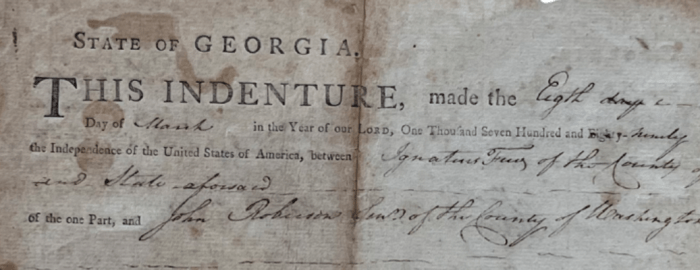 STATE OF GEORGIA.
THIS INDENTURE, made the Eigth
Day of March in the Year of our LORD, One Thousand Seven Hundred and Eighty-ninety
the Independence of the United States of America, between Ignatius of the County
and State aforsaid
of the one Part, and John Roberson of the County of Washington